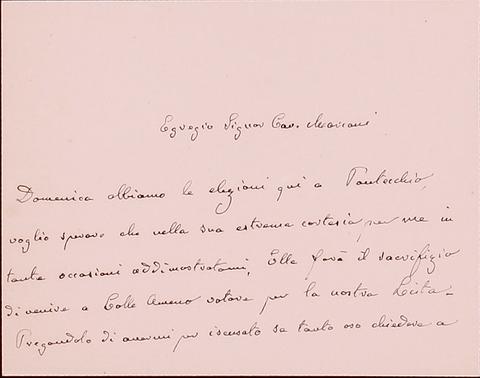 Egregio Signor Cav. Marconi
Domenica abbiamo le elezioni qui a Pontecchio,
voglio sperare che nella sua estrema cortesia, per me in
tante occasioni addimostratami, Elle farà il sacrifizio
di venire a Colle Ameno votare per la nostra Lista-
Pregandolo di avermi per iscusato se tanto oso chiedere a